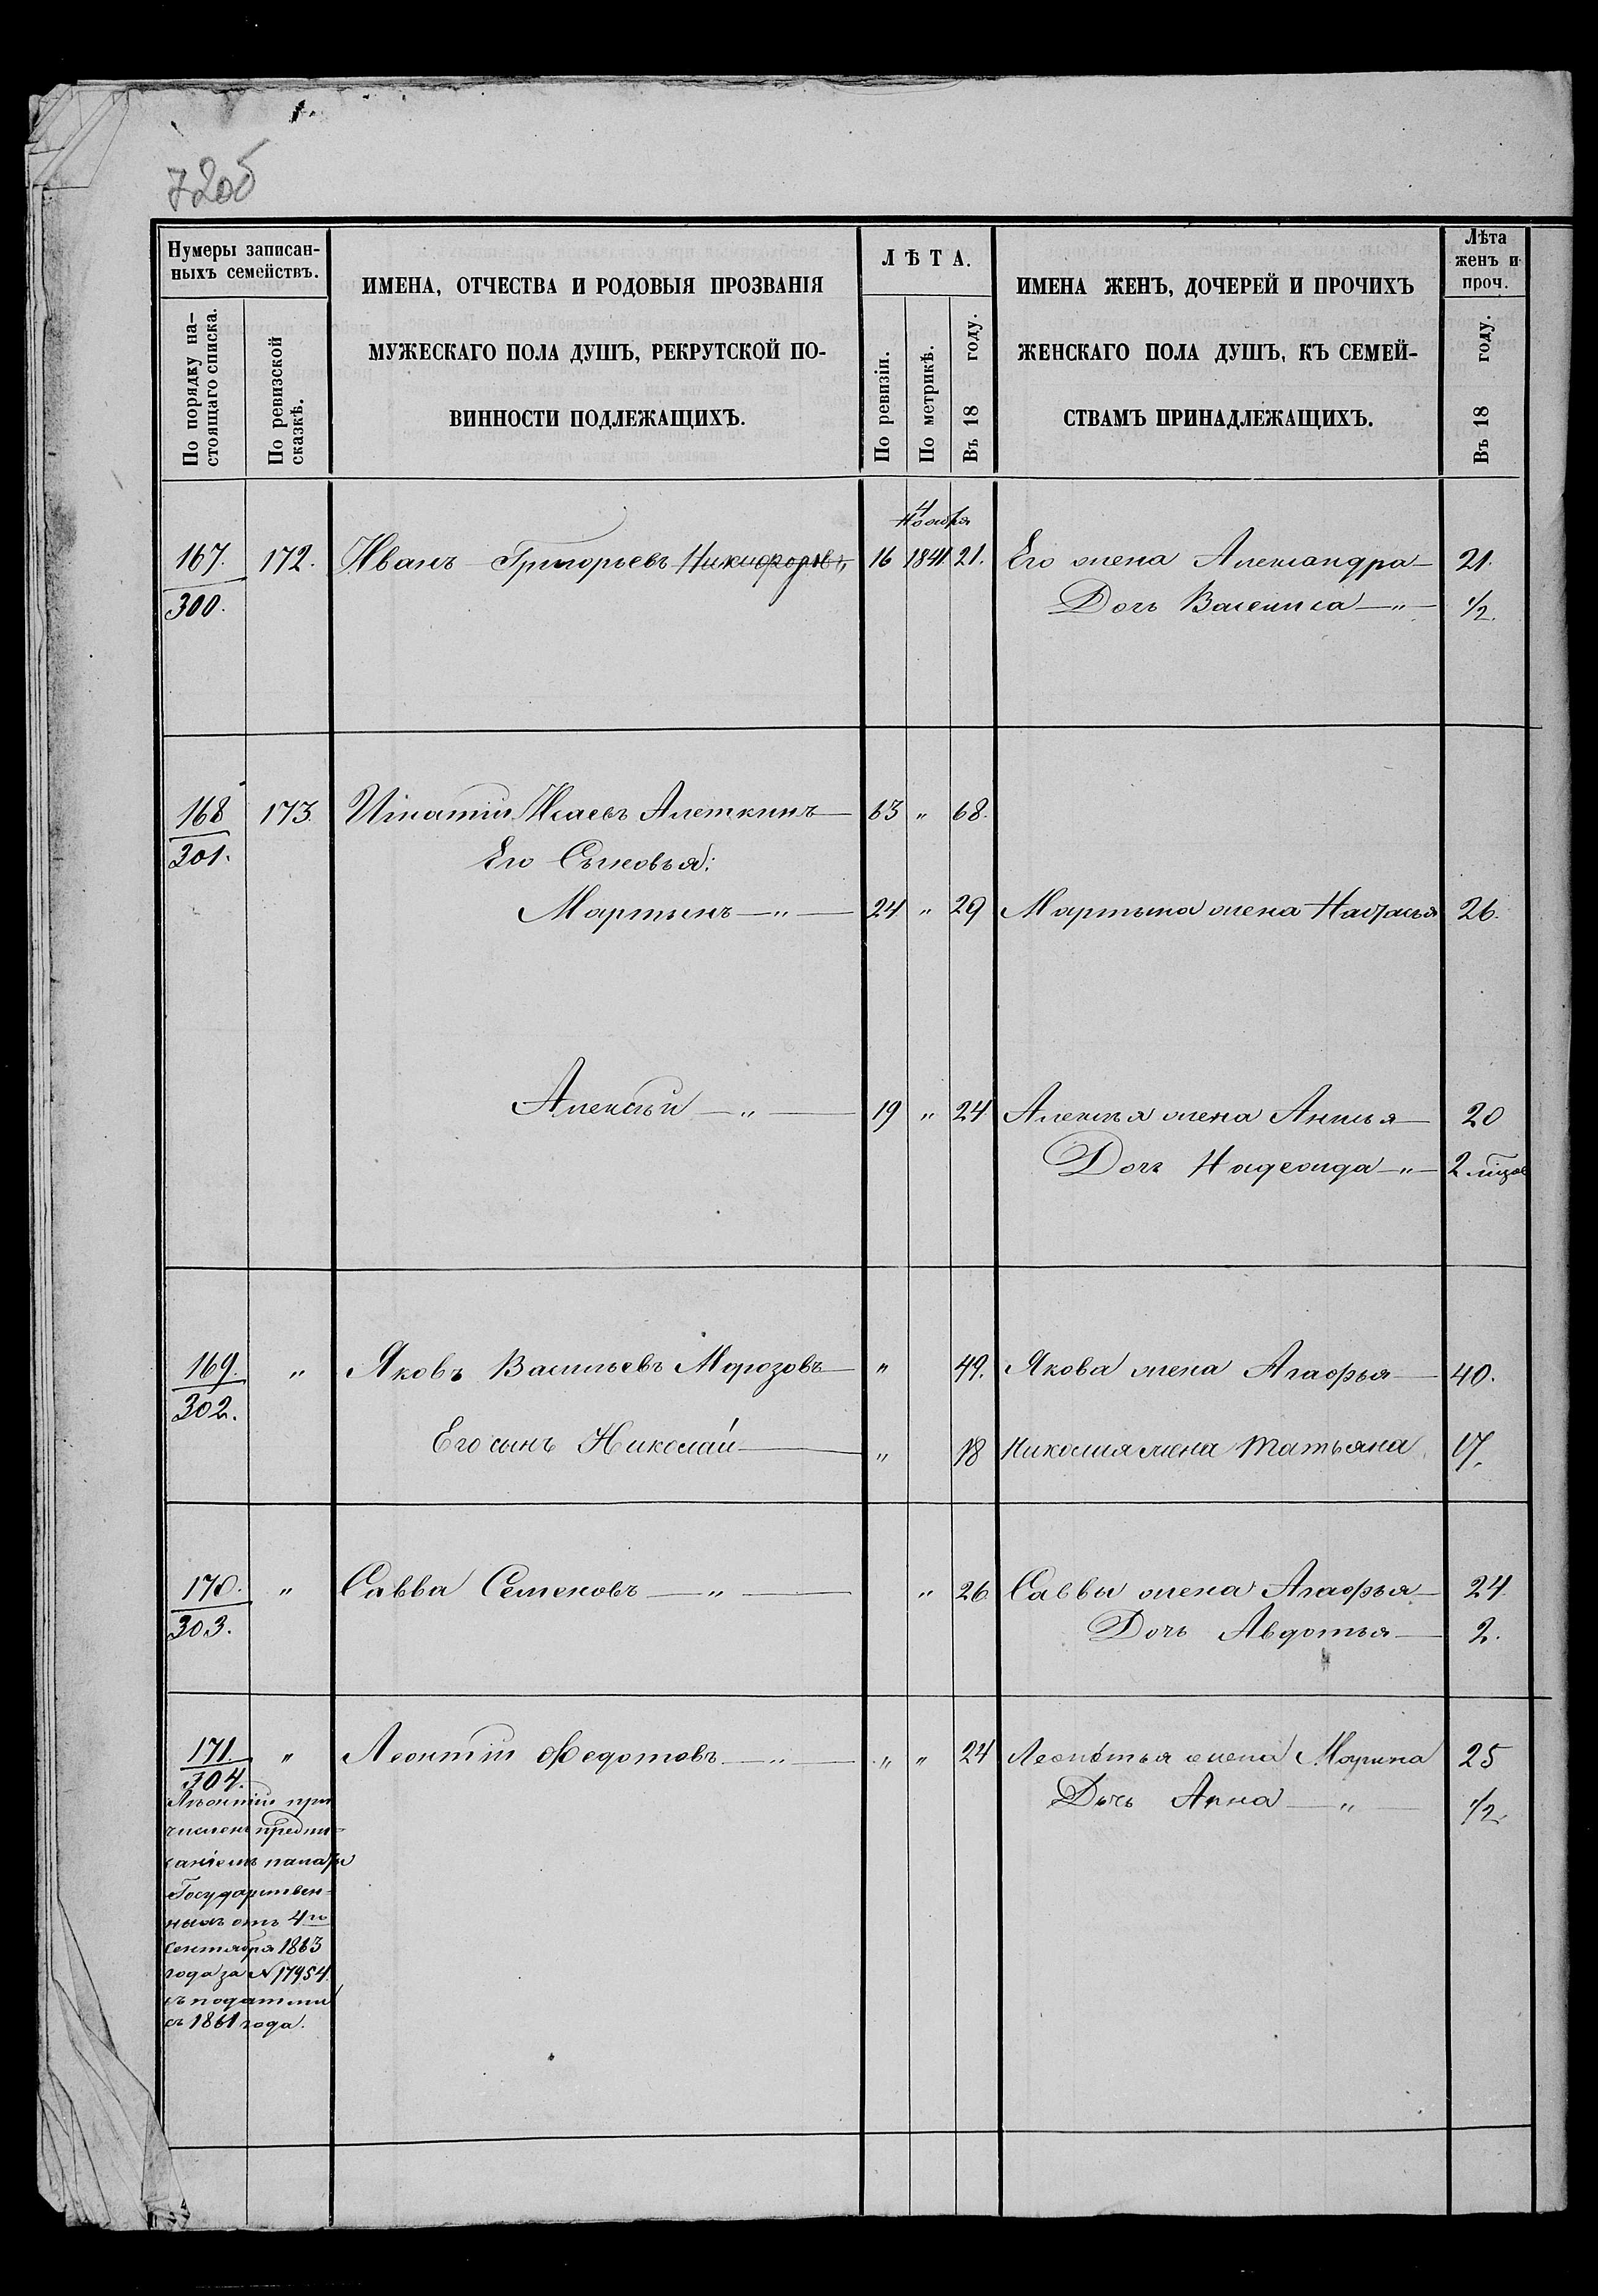 72об
Нумеры записан-
ныхъ семействъ.
По порядку на-
стоящаго списка.
По ревизской
сказкѣ.
ИМЕНА, ОТЧЕСТВА И РОДОВЫЯ ПРОЗВАНІЯ
МУЖЕСКАГО ПОЛА ДУШЪ, РЕКРУТСКОЙ ПО-
ВИННОСТИ ПОДЛЕЖАЩИХЪ.
ЛѢТА.
По ревизіи.
По метрикѣ.
Въ 18 году.
ИМЕНА ЖЕНЪ, ДОЧЕРЕЙ И ПРОЧИХЪ
ЖЕНСКАГО ПОЛА ДУШЪ, КЪ СЕМЕЙ-
СТВАМЪ ПРИНАДЛЕЖАЩИХЪ.
Лѣта
женъ и
проч.
Въ 18 году.
4
Ноября
167. 172. Иванъ Григорьевъ Никифоровъ 16 1841. 21. Его жена Александра — 21.
300. Дочь Василиса — „ — 1/2.
168 173. Игнатій Исаевъ Алеткинъ — 63 „ 68.
301. Его Сыновья:
Мартынъ — „ — 24 „ 29 Мартына жена Настасья 26.
Алексѣй — „ — 19 „ 24 Алексѣя жена Анисья — 20
Дочь Надежда — „ — 2
169. „ Яковъ Васильевъ Морозовъ — „ 49. Якова жена Агафья — 40.
302.
Его сынъ Николай — „ 18 Николая жена Татьяна 17.
170. „ Савва Семеновъ — „ — „ 26. Саввы жена Агафья — 24.
303. Дочь Авдотья — 2.
171. „ Леонтій Федотовъ — „ — „ „ 24 Леонтья жена Марина 25
304. Дочь Анна — „ — 1/2.
Леонтій при
численъ предпи-
саніемъ палаты
Государствен-
ныхъ отъ 4го
Сентября 1863
года за N 17954.
съ податьми
съ 1861 года.